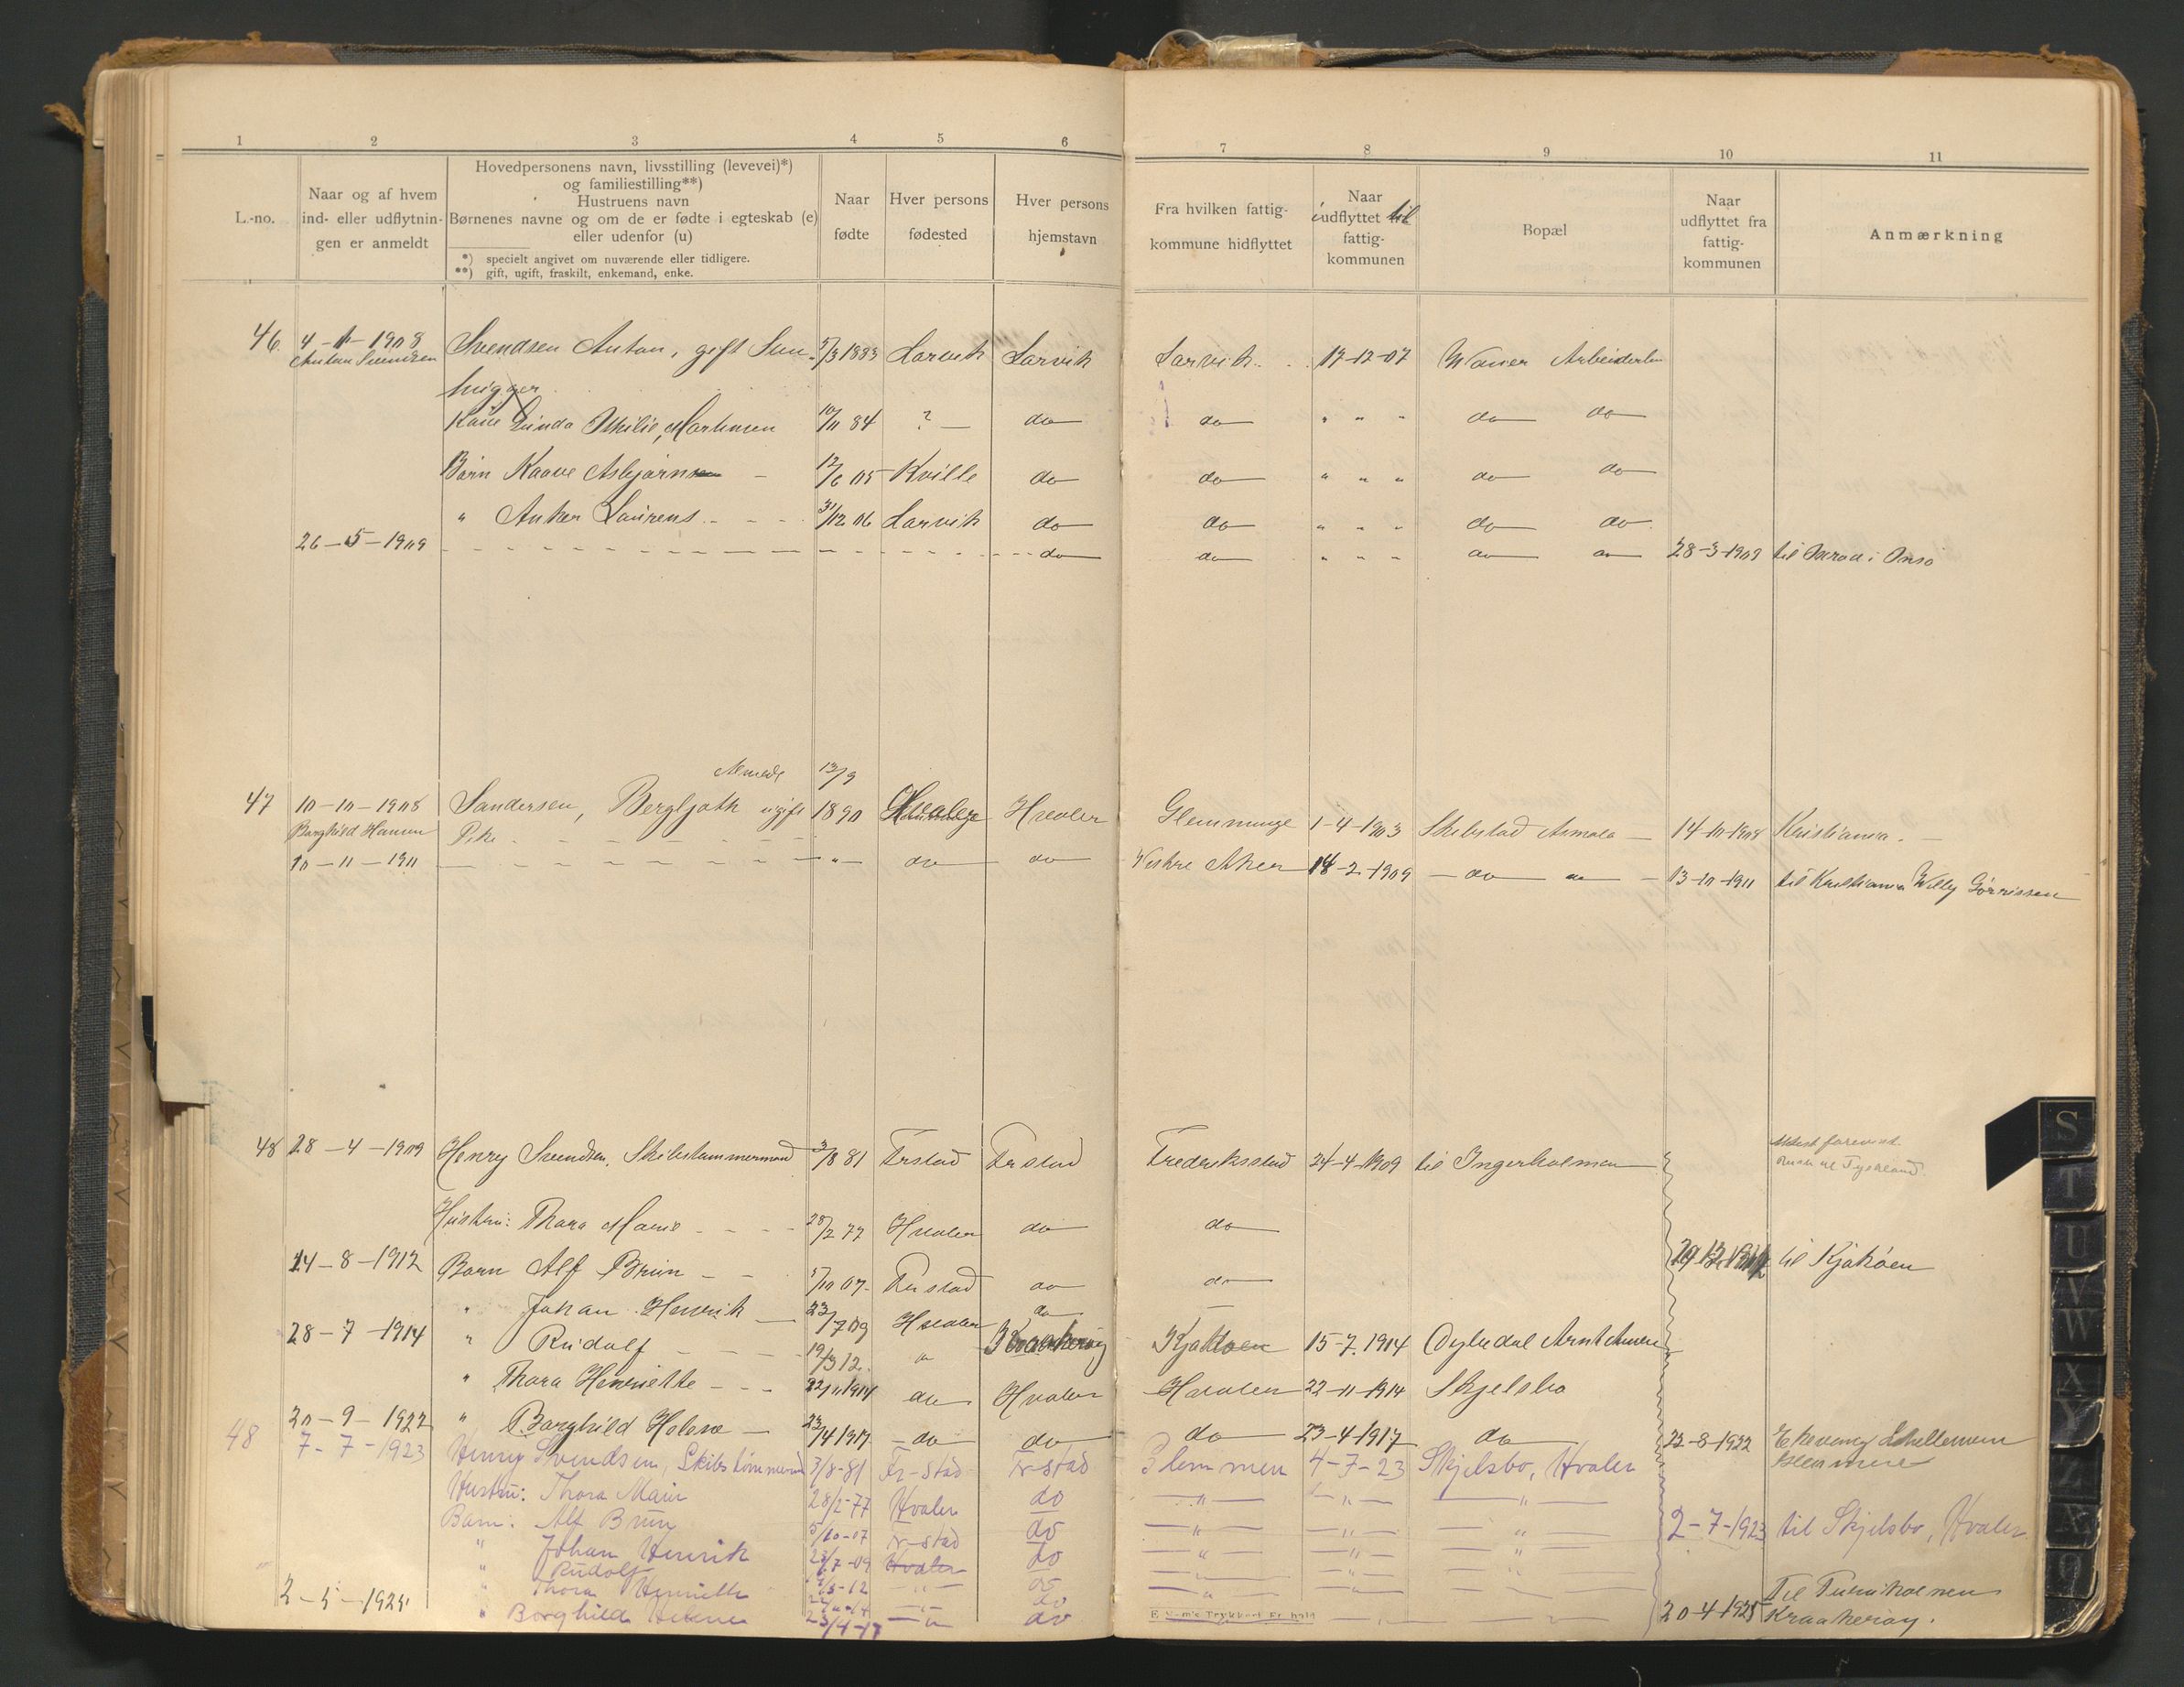 1 2 3 4 5 6 7 8 9 10 11
L.-no.
Naar og af hvem
ind- eller udflytnin-
gen er anmeldt
Hovedpersonens navn, livsstilling (levevei)*)
og familiestilling**)
Hustruens navn
Børnenes navne og om de er fødte i egteskab (e)
eller udenfor (u)
*) specielt angivet om nuværende eller tidligere.
**) gift, ugift, fraskilt, enkemand, enke.
Naar
fødte
Hver persons
fødested
Hver persons
hjemstavn
Fra hvilken fattig-
kommune hidflyttet
Naar
iudflyttet til
fattig-
kommunen
Bopæl
Naar
udflyttet fra
fattig-
kommunen
Anmærkning
46 4-1-1908 Svendsen Anton, gift 5/3 1883 Larvik Larvik Larvik 17-12-07
Anton Svendsen
hugger
Kone Linda Othilie Martinsen 10/11 84 ? do do " " " do do
Børn Kaare Asbjørn 12/6 05 Kville do do " " " do do
" Anker Laurens 31/12 06 Larvik do do " " " do do
26-5-1909 do do " " " do do 28-3-1909 til i Onsø
12/9
47 10-10-1908 Sandersen, Bergljoth ugift 1890 Hvaler Glemminge 1-4-1903 Skibstad Asmalø 14-10-1908 Kristiania.
Borghild Hansen Pike
10-11-1911 " do do Vestre Aker 18-2-1909 do 13-10-1911 til Kristiania Willy Gørrissen
48 28-4-1909 Henry Svendsen, Skibstømmermand 3/8 81 Frstad Frstad Fredriksstad 24-4-1909 til Ingerholmen
til Tyskland
Hustru: Thora Marie 28/2 77 Hvaler do do
14-8-1912 Barn Alf Brun 5/10 07 Frstad do do til Kjøkøen
" Johan Henrik 23/7 09 Hvaler do
28-7-1914 " Rudolf 19/3 12 " Kraakerøy Kjøkøen 15-7-1914
" Thora Henriette 22/11 1914 do Hvaler Hvaler 22-11-1914 Skjelsbo
20-9-1922 " Borghild Helene 23/4 1917 do do do 23-4-1917 do 22-8-1922 Ekevang
48 7-7-1923 Henry Svendsen, Skibstømmermand 3/8-81 Fr-stad Fr-stad Glemmen 4-7-23 Skjelsbo, Hvaler
Hustru: Thora Marie 28/2-77 Hvaler do " " "
Barn: Alf Brun 5/10-07 Fr-stad do " " " 2-7-1923 til Skjelsbo, Hvaler
" Johan Henrik 23/7-09 Hvaler do " " "
" Rudolf 19/3-12 " do " " "
" Thora Henriette 22/11-14 " do
2-5-1925 " Borghild Helene 23/4-17 " do " " 20-4-1925 Til
Kraakerøy.
S
T
U
V W
X
Y
Z
Æ
Ø